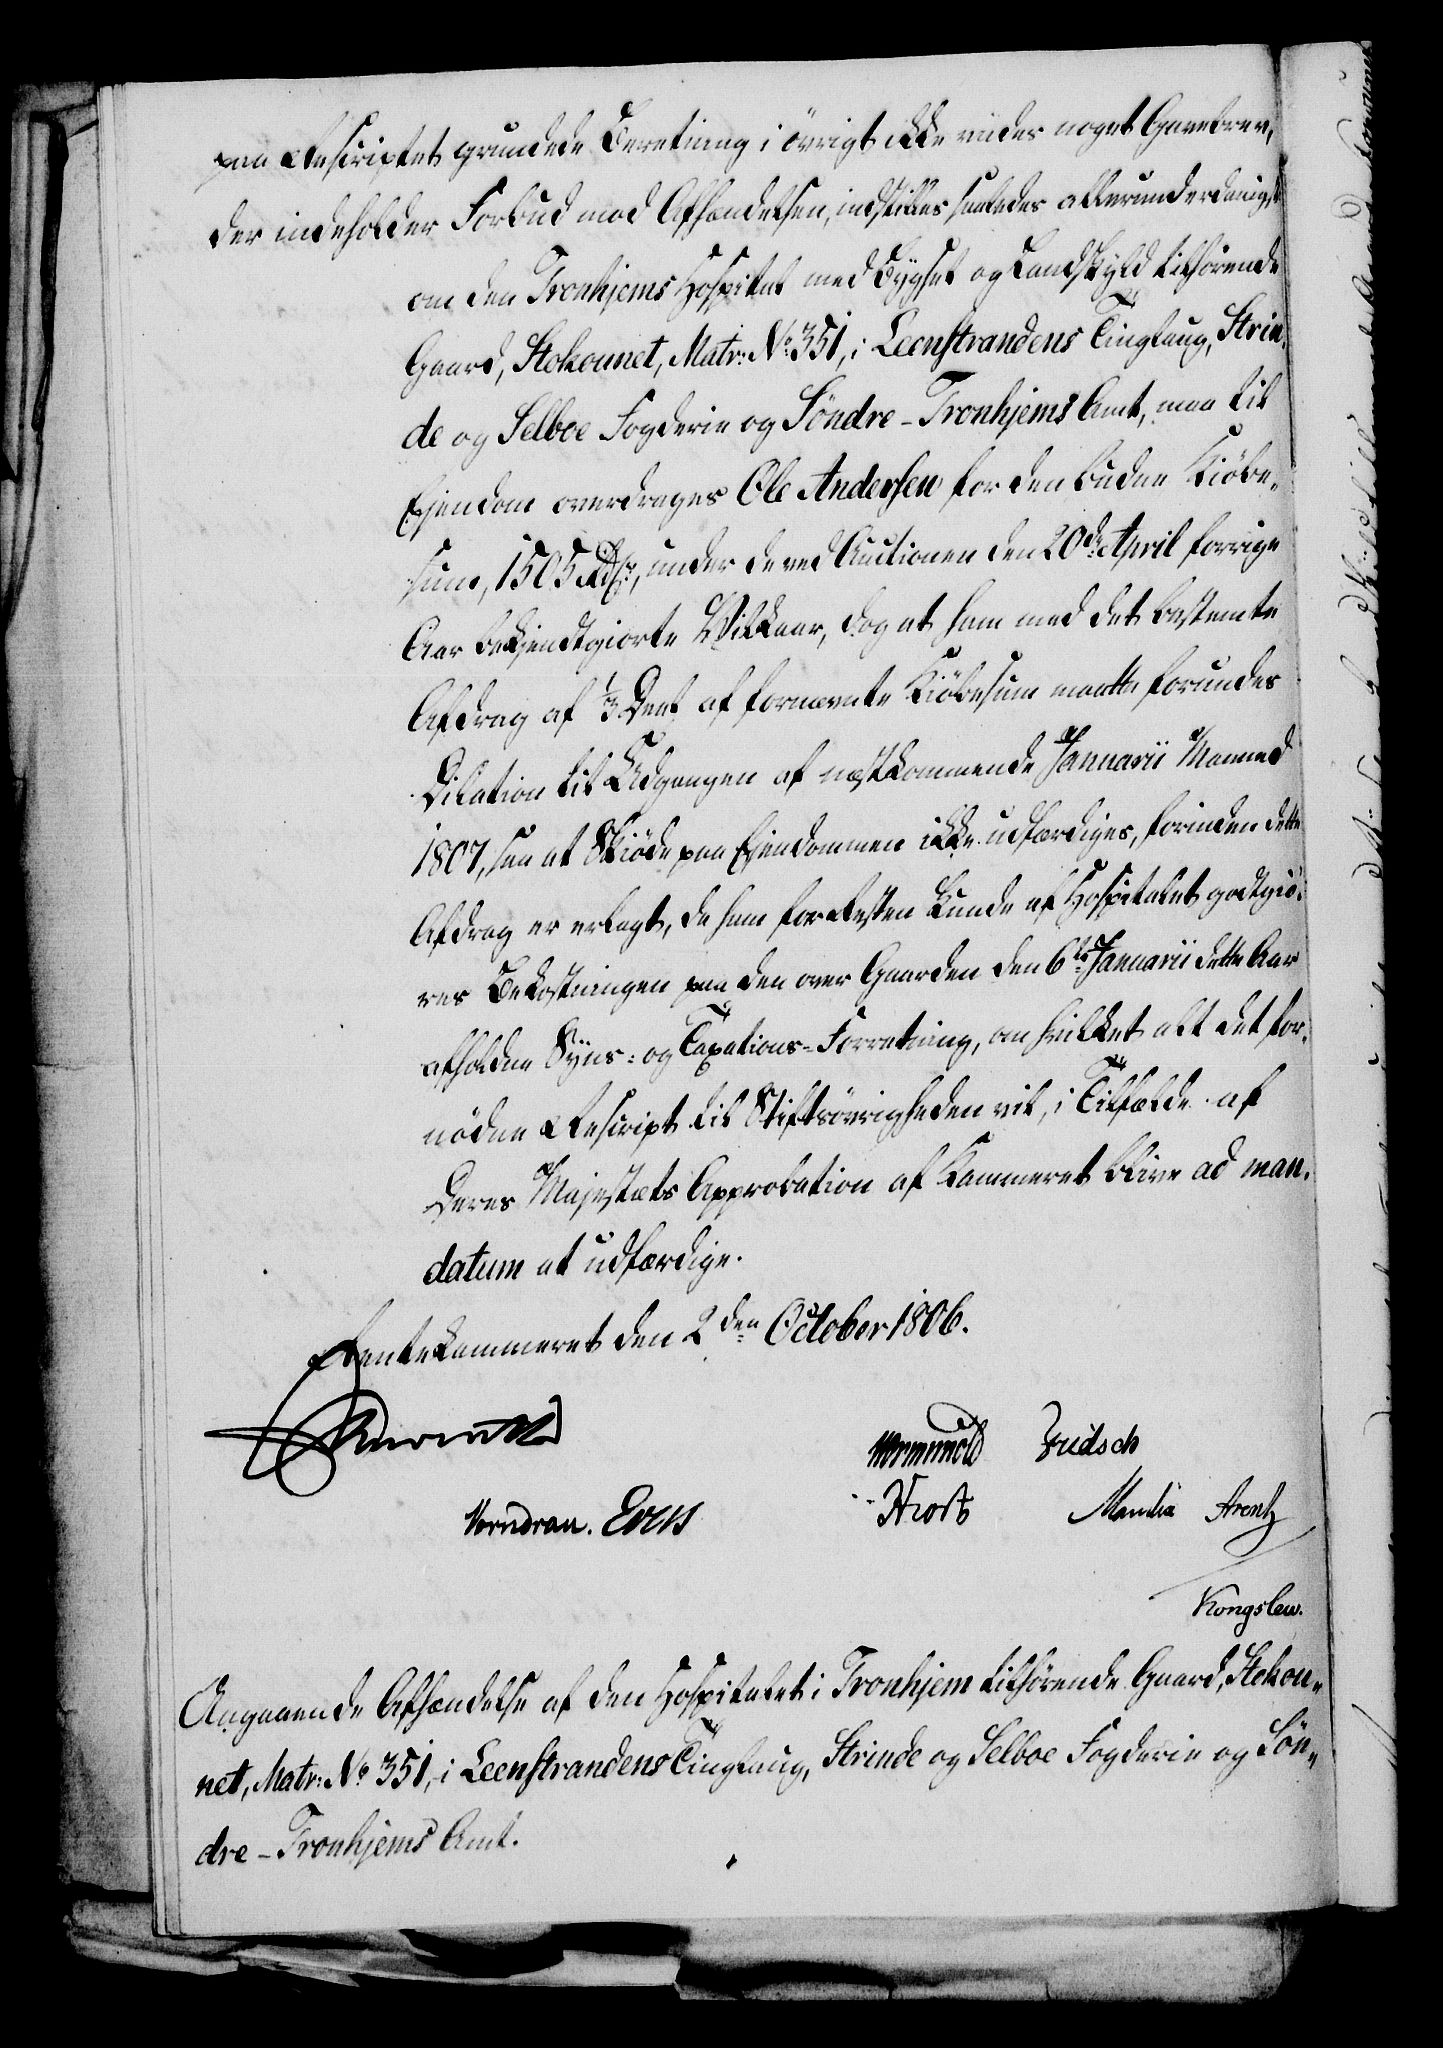 paa Rescriptet grundede Beretning i övrigt ikke vides noget Gavebrev,
der indeholder Forbud mod Afhændelsen, indstilles saaledes allerunderdanigst
om den Tronhjems Hospital med Bygsel og Landskyld tilhörende
Gaard, Stokounet, Matr: No. 351, i Leenstrandens Tinglaug, Strin-
de og Selboe Fogderie og Söndre-Tronhjems Amt, maa til
Ejendom overdrages Ole Andersen for den budne Kiöbe-
sum, 1505 Rdlr, under de ved Auctionen den 20de April forrige
Aar bekjendtgiorte Vilkaar, dog at ham med det bestemte
Afdrag af 1/3 Deel af fornævnte Kiöbesum maatte forundes
Dilation til Udgangen af næstkommende Januarii Maaned
1807, saa at Skiöde paa Ejendommen ikke udfærdiges, forinden dette
Afdrag er erlagt, da ham forresten kunde af Hospitalet godtgiö-
res Bekostningen paa den over Gaarden den 6te Januarii dette Aar
afholdne Syns- og Taxations-Forretning, om hvilket alt det for-
nödne Rescript til Stiftsövrigheden vil, i Tilfælde af
Deres Majestæts Approbation af Kammeret blive ad man-
datum at udfærdige.
Rentekammeret den 2den October 1806.
Wormskiold
Hiort
Arentz
Kongslew.
Angaaende Afhændelse af den Hospitalet i Tronhjem tilhörende Gaard, Stokou-
net, Matr: No. 351, i Leenstrandens Tinglaug, Strinde og Selboe Fogderie og Sön-
dre-Tronhjems Amt.